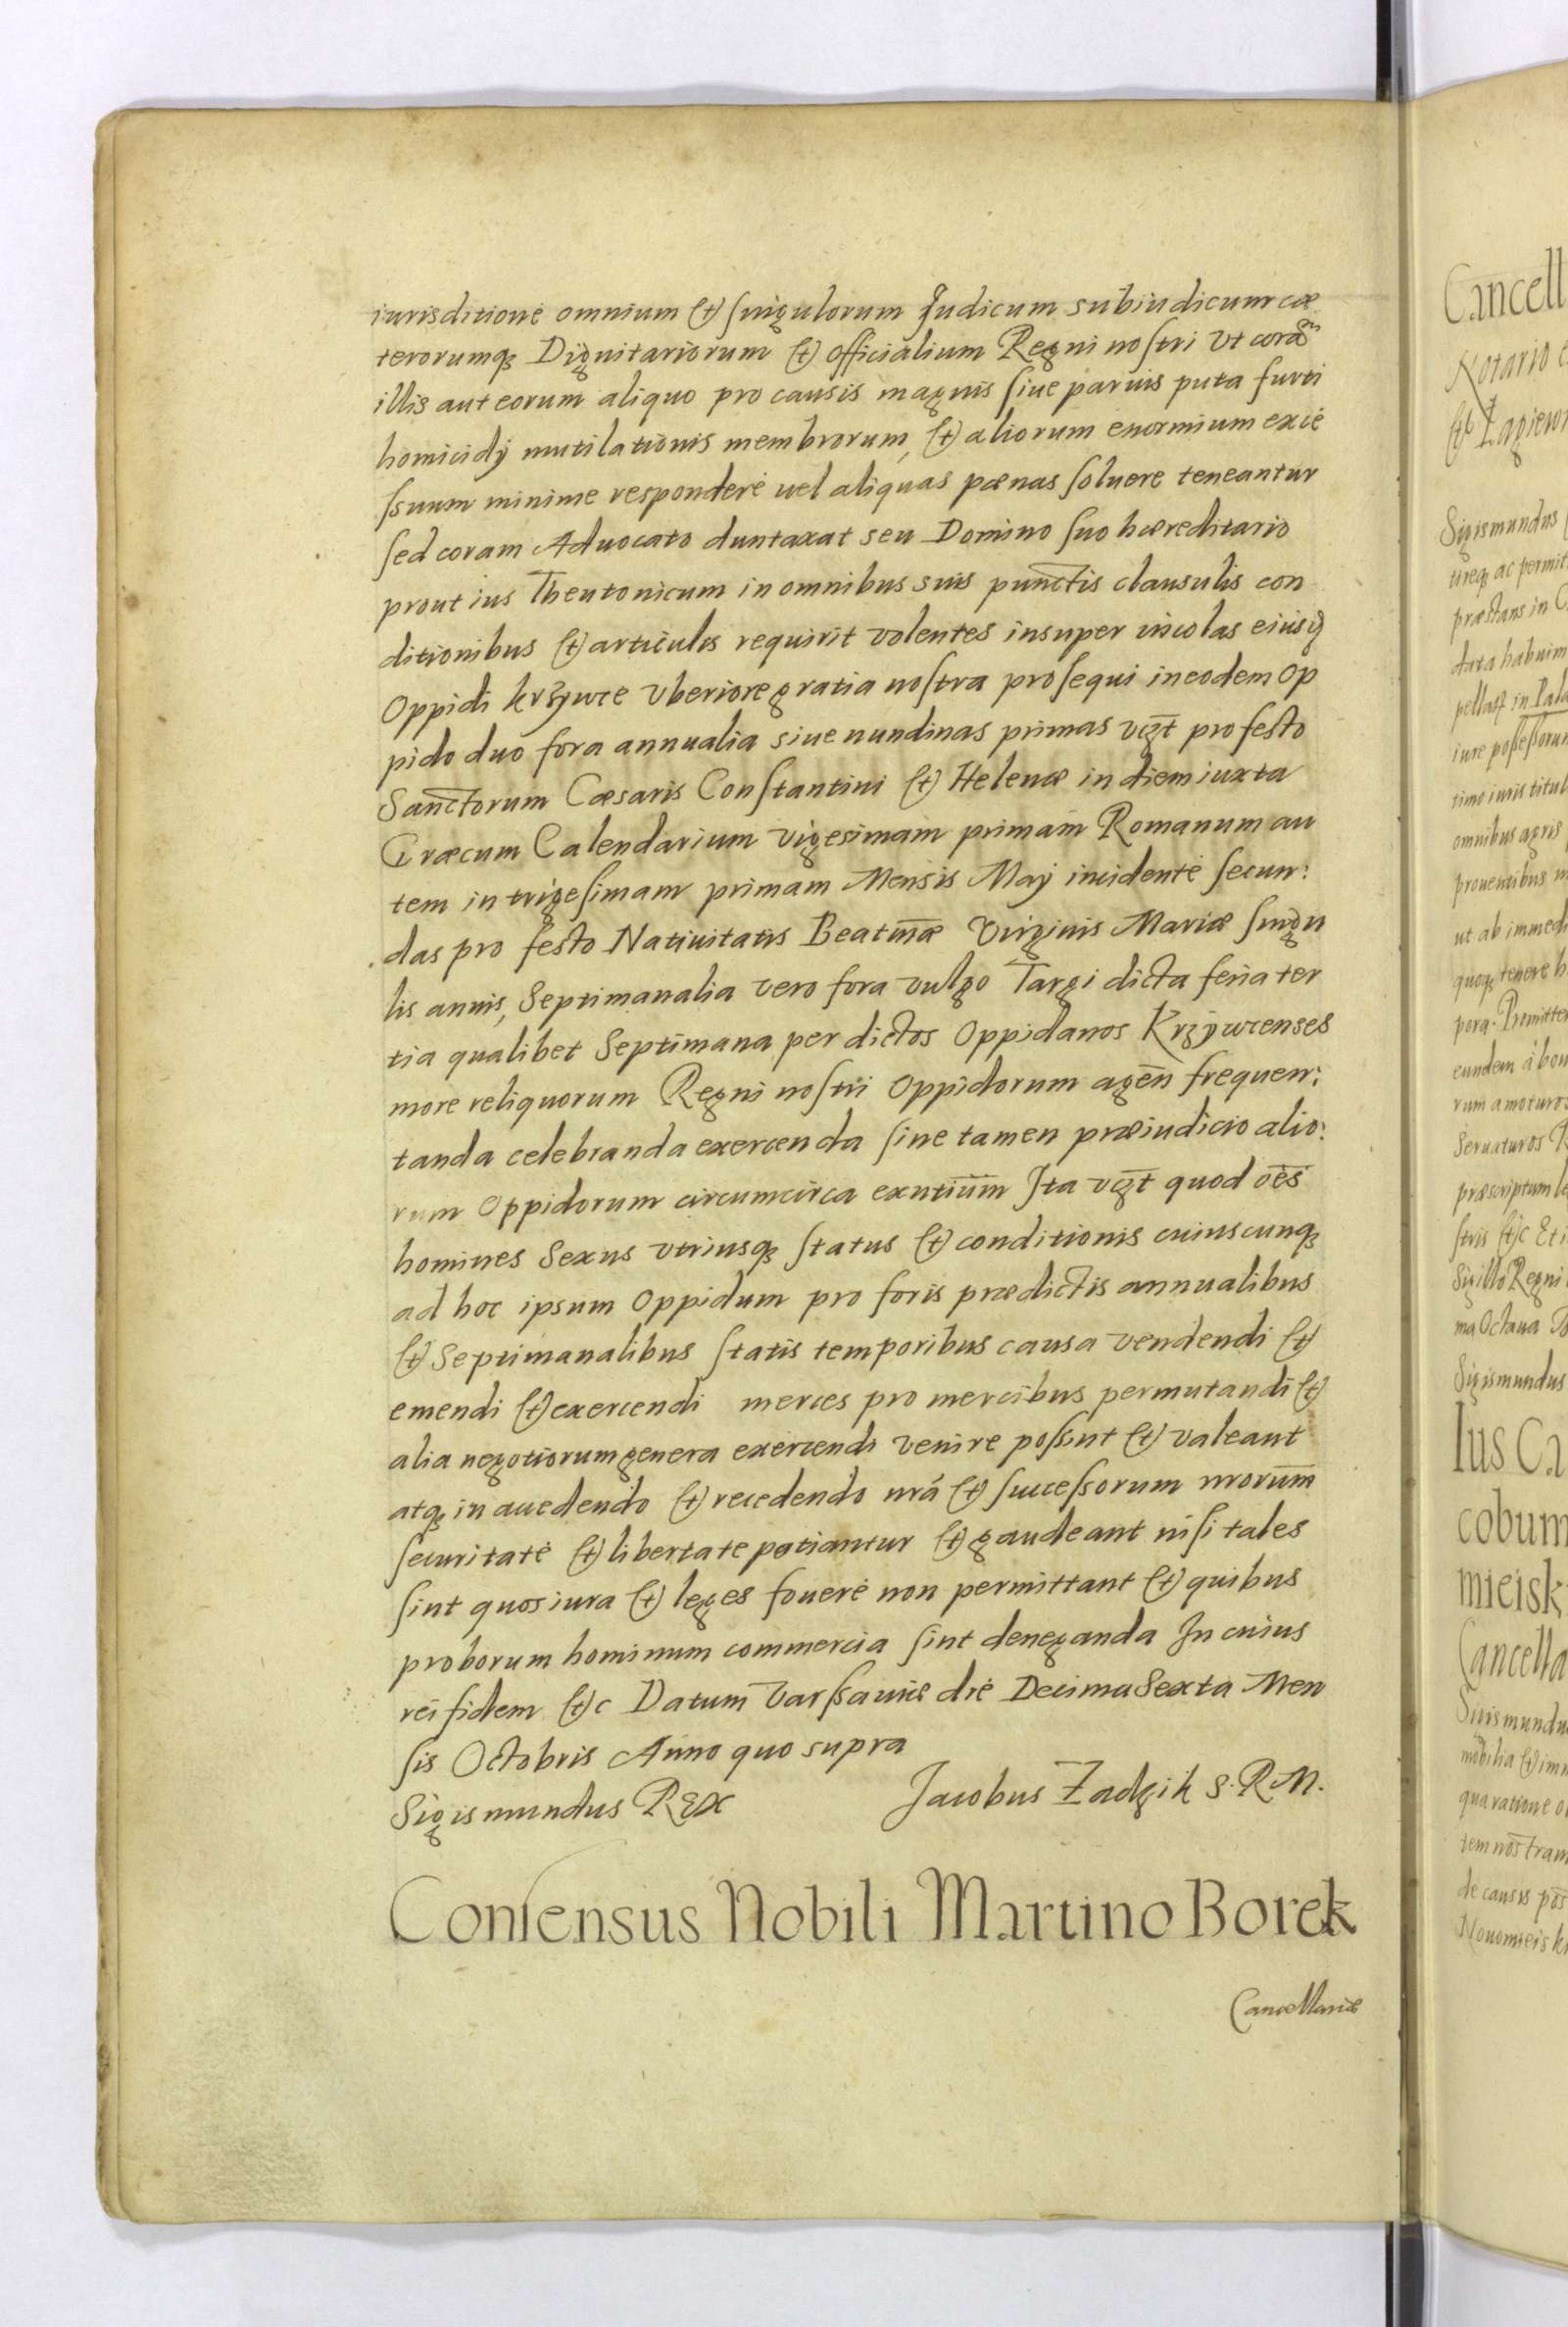 iurisditione omnium et singulorum Judicum subiudicum cæ
terorumq; Dignitariorum et officialium Regni nostri Vt corā
illis aut eorum aliquo pro causis magnis siue paruis puta furti
homicidij mutilationis membrorum, et aliorum enormium exce
ssuum minime respondere uel aliquas pænas soluere teneantur
sed coram Aduocato duntaxat seu Domino suo hæreditario
prout ius Theutonicum in omnibus suis punctis clausulis con
ditionibus et articulis requirit volentes insuper incolas eiusd
Oppidi Krzywce vberiore gratia nostra prosequi in eodem Op
pido duo fora annualia siue nundinas primas vczt pro festo
Sanctorum Cæsaris Constantini et Helenæ in diem iuxta
Græcum Calendarium vigesimam primam Romanum au
tem in trigesimam primam Mensis Maij incidente secun:
das pro festo Natiuitatis Beatmæ Virginis Mariæ singu
lis annis, Septimanalia vero fora vulgo Targi dicta feria ter
tia qualibet Septimana per dictos Oppidanos Krzywcenses
more reliquorum Regni nostri Oppidorum agēn frequen:
tanda celebranda exercenda sine tamen præiudicio alio:
rum Oppidorum circumcirca exntium Ita vczt quod oēs
homines Sexus vtriusq; status et conditionis cuiuscunq;
ad hoc ipsum Oppidum pro foris prædictis annualibus
et Septimanalibus statis temporibus causa vendendi et
emendi et exercendi merces pro mercibus permutandi et
alia negotiorum genera exercendi venire possint et valeant
atq; in accedendo et recedendo nrā et successorum nrorum
securitate et libertate potiantur et gaudeant nisi tales
sint quos iura et leges fouere non permittant et quibus
proborum hominum commercia sint deneganda In cuius
rei fidem etc Datum Varssauiæ die Decima Sexta Men
sis Octobris Anno quo supra
Sigismundus Rex Jacobus Zadzik S. R. M.
Consensus Nobili Martino Borek
Cancellariæ
Cancell
Notario
Sigismundus
ac permit
præstans in
data habuim
in Pala
iure possessorum
timo iuris titul
omnibus agris
prouentibus
ut ab immed
quoq; tenere h
pora. Promitte
eundem à bon
rum amoturos
Seruaturos
præscriptum le
stris etc Et i
Sigillo Regni
ma Octaua
Sigismundus
Ius Ca
cobum
mieisk
Cancella
Sigismundu
mobilia et imm
qua ratione
tem nostram
de causis
Nouomieisk